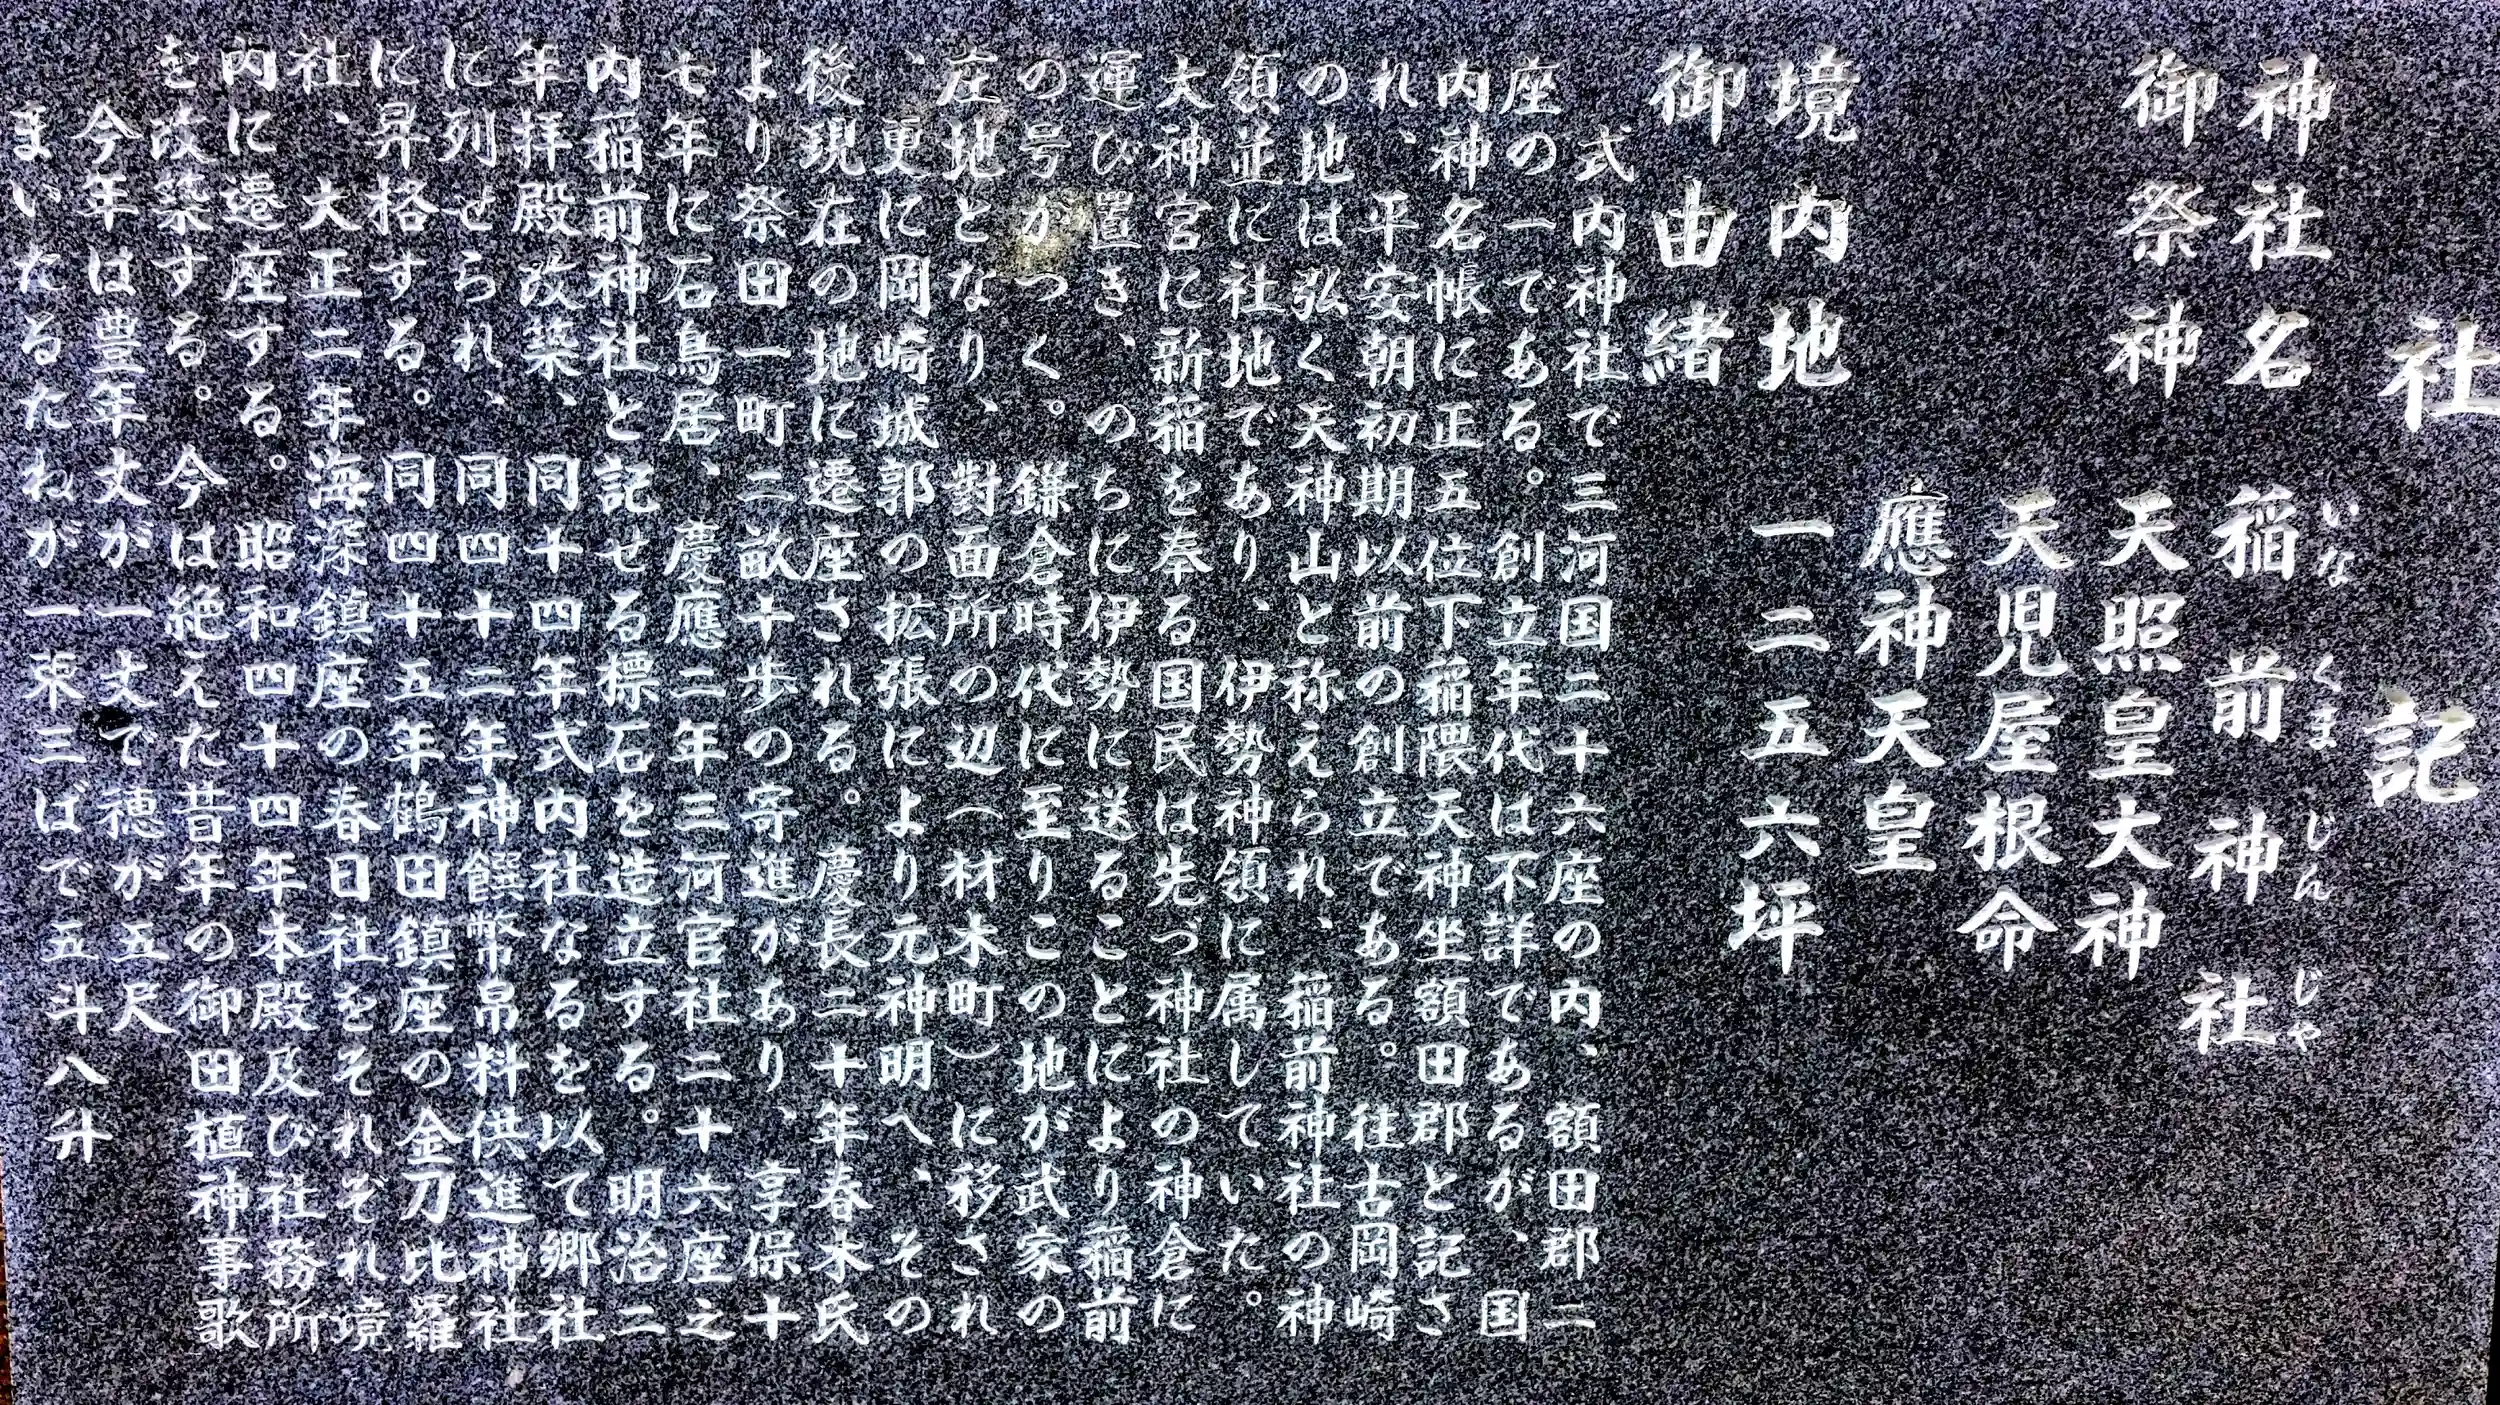 社記
神社名 稲前神社
いな くま じん じや
御祭神 天照皇大神
天児屋根命
應神天皇
境内地 一二五六坪
御由緒
式内神社で三河国二十六座の内、額田郡二
座の一である。創立年代は不詳であるが、国
内神名帳に正五位下稲隈天神坐額田郡と記さ
れ、平安朝初期以前の創立である。往古岡崎
の地は弘く天神山と称えられ、稲前神社の神
領並に社地であり、伊勢神領に属していた。
大神宮に新稲を奉る国民は先づ神社の神倉に
運び置き、のちに伊勢に送ることにより稲前
の号がつく。鎌倉時代に至りこの地が武家の
庄地となり、對面所の辺（材木町）に移され
、更に岡崎城郭の拡張により元神明へ、その
後現在の地に遷座される。慶長二十年春木氏
より祭田一町二畝十歩の寄進があり、享保十
七年に石鳥居、慶應二年三河官社二十六座之
内稲前神社と記せる標石を造立する。明治二
年拝殿改築、同十四年式内社なるを以て郷社
に列せられ、同四十二年神饌幣帛料供進神社
に昇格する。同四十五年鶴田鎮座の金刀比羅
社、大正二年海深鎮座の春日社をそれぞれ境
内に遷座する。昭和四十四年本殿及び社務所
を改築する。今は絶えた昔年の御田植神事歌
今年は豊年丈が一丈で穂が五尺
まいたるたねが一束三ばで五斗八升